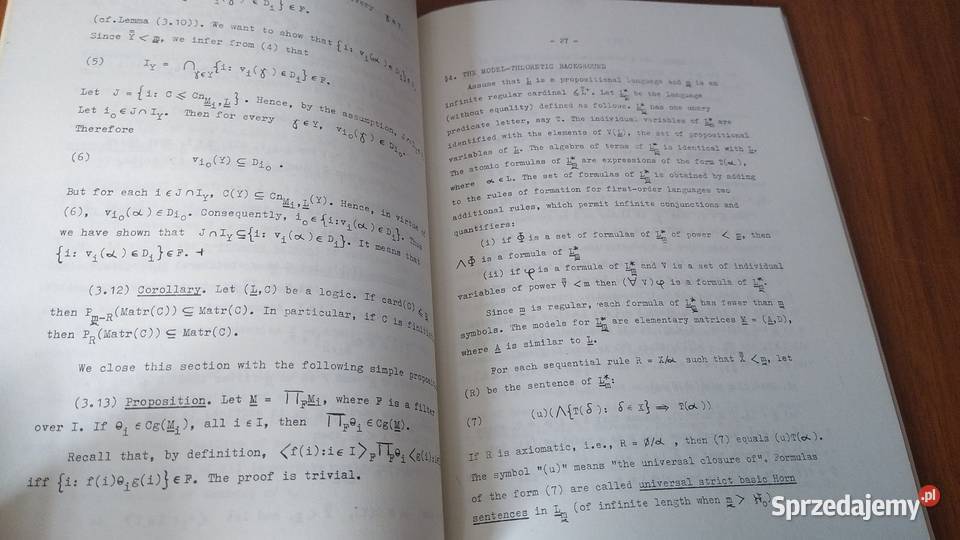 (cf.Lemma (3.10)). We want to show that {i: v_i(α) ∈ D_i}
Since Y̿ < m, we infer from (4) that
(5) I_Y = ⋂_{γ∈Y}{i: v_i(γ) ∈ D_i} ∈ F.
Let J = {i: C ⩽ Cn_{M_i,L}}. Hence, by the assumption,
Let i_o ∈ J∩I_Y. Then for every γ∈Y, v_{i_o}(γ) ∈ D_{i_o}.
Therefore
(6) v_{i_o}(Y) ⊆ D_{i_o} .
But for each i ∈ J∩I_Y, C(Y) ⊆ Cn_{M_i,L}(Y). Hence, in virtue of
(6), v_{i_o}(α) ∈ D_{i_o}. Consequently, i_o ∈ {i: v_i(α) ∈ D_i}. Thus
we have shown that J∩I_Y ⊆ {i: v_i(α) ∈ D_i}. It means that
{i: v_i(α) ∈ D_i} ∈ F. ⊣
(3.12) Corollary. Let (L,C) be a logic. If card(C) ⩽ m
then P_{m-R}(Matr(C)) ⊆ Matr(C). In particular, if C is
then P_R(Matr(C)) ⊆ Matr(C).
We close this section with the following simple
(3.13) Proposition. Let M = ∏_F M_i, where F is a filter
over I. If Θ_i ∈ Cg(M_i), all i ∈ I, then ∏_F Θ_i ∈ Cg(M).
Recall that, by definition, <f(i):i ∈ I>_F ∏_F Θ_i <g(i):
iff {i: f(i)Θ_i g(i)} ∈ F. The proof is trivial.
- 27 -
§4. THE MODEL-THEORETIC BACKGROUND
Assume that L is a propositional language and m is an
infinite regular cardinal ⩽ L̿⁺. Let L*_m be the language
(without equality) defined as follows. L*_m has one unary
predicate letter, say T. The individual variables of L*_m are
identified with the elements of V(L), the set of propositional
variables of L. The algebra of terms of L*_m is identical with L.
The atomic formulas of L*_m are expressions of the form T(α),
where α ∈ L. The set of formulas of L*_m is obtained by adding
to the rules of formation for first-order languages two
additional rules, which permit infinite conjunctions and
quantifiers:
(i) if Φ is a set of formulas of L*_m of power < m, then
⋀Φ is a formula of L*_m
(ii) if φ is a formula of L*_m and V is a set of individual
variables of power V̿ < m then (∀V)φ is a formula of L*_m.
Since m is regular, each formula of L*_m has fewer than m
symbols. The models for L*_m are elementary matrices M = (A,D),
where A is similar to L.
For each sequential rule R = X/α such that X̿ < m, let
(R) be the sentence of L*_m:
(7) (u)(⋀{T(δ): δ ∈ X} ⟹ T(α))
If R is axiomatic, i.e., R = ∅/α , then (7) equals (u)T(α).
The symbol "(u)" means "the universal closure of". Formulas
of the form (7) are called universal strict basic Horn
sentences in L_m (of infinite length when m > ℵ_0).
Sprzedajemy.pl